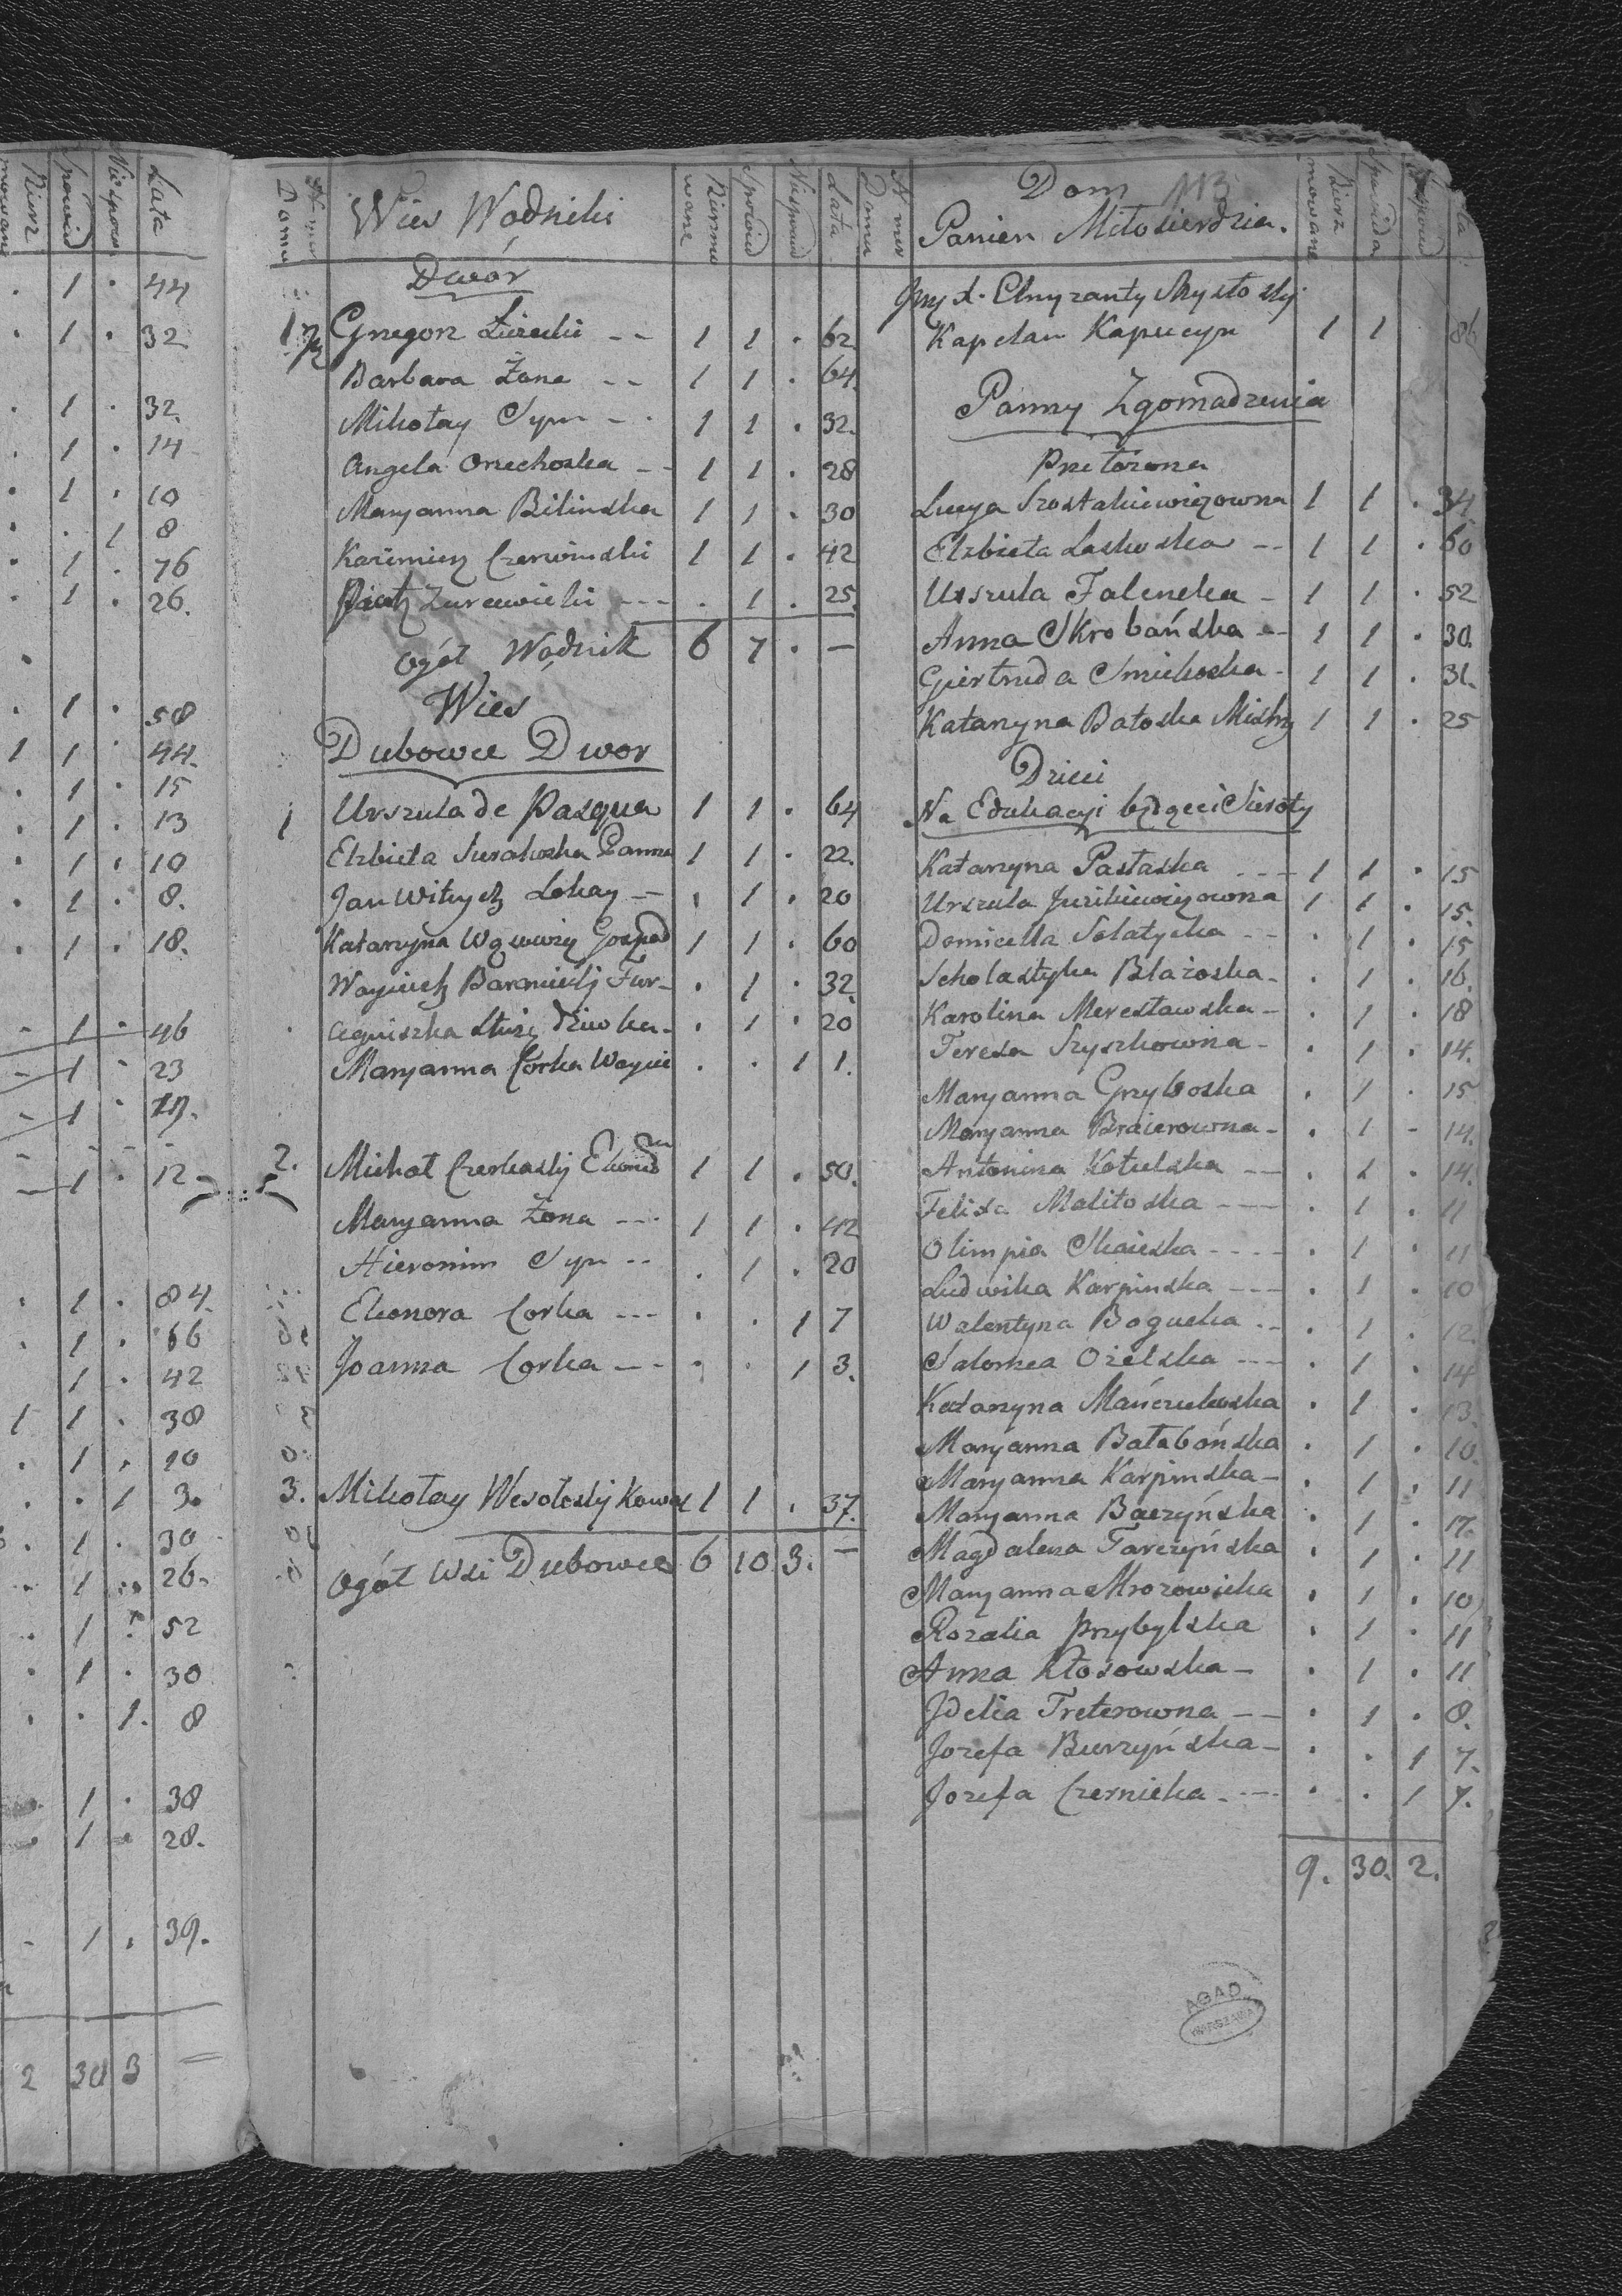 Bierz mowane Spowied Niespow Lata
. 1 . 44
. 1 . 32
. 1 . 32.
. 1 . 14
. 1 . 10
. . 1 8
. 1 . 76
. 1 . 26.
. 1 . 58
1 1 . 44.
. 1 . 15
. 1 . 13
. 1 . 10
. 1 . 8.
. 1 . 18.
- 1 . 46
- 1 . 23
- 1 .
- 1 . 12
. 1 . 84.
. 1 . 66
1 . 42
1 1 . 38
. 1 . 10
. . 1 3.
. 1 . 30
. 1 . 26.
. 1 . 52
. 1 . 30
. . 1. 8
1 . 38
1 . 28.
- 1 . 39.
2 30 3 —
Numer Domu Wies Wodniki Bierzmo wane Spowied Niespowied Lata
Dwór
1 Grzegorz -- 1 1 . 62
Barbara Żona -- 1 1 . 64.
Mikołay Syn -- 1 1 . 32.
Angela Orzechoska -- 1 1 . 28
Maryanna Bilinska 1 1 . 30
Kazimierz Czerwinski 1 1 . 42
Zurawicki --- . 1 . 25.
Ogół Wodnik 6 7 . —
Wies
Dubowce Dwor
1 Urszula de Pasqua 1 1 . 64
Elzbieta Panna 1 1 . 22.
Jan Lokay — . 1 . 20
Katarzyna Gospod 1 1 . 60
Woyciech Fur- . 1 . 32.
Agniszka Służ. dziwka- . 1 . 20
Maryanna Corka Woyci . . 1 1.
2. Michał Czerkaskij 1 1 . 50.
Maryanna Żona --- 1 1 . 42
Hieronim Syn -- . 1 . 20
Eleonora Corka --- . . 1 7
Joanna Corka --- . . 1 3.
3. Mikołay Wesołoskij Kowal 1 1 . 37.
Ogół Wsi Dubowce 6 10 3. —
Numer Domu Dom 113 Bierz mowane Spowieda
Panien Miłosierdzia.
Kapelan Kapucyn 1 1 86
Panny Zgomadzenia
Przełożona
Lucya Szostakiewiczowna 1 1 . 34
Elzbieta Laskoska -- 1 1 . 60
Urszula Falencka - 1 1 . 52
Anna Skrobańska -- 1 1 . 30.
Giertruda Smickoska - 1 1 . 31.
Katarzyna Batoska 1 1 . 25
Dzieci
Na Edukacyi będące i Sieroty
Katarzyna Pastaska --- 1 1 . 15
Urszula Juzikiewiczowna 1 1 . 15.
Domicella Solatycka -- . 1 . 15
Scholastyka Błażoska - . 1 . 16.
Karolina Meresławska - . 1 . 18
Teresa Szyszkowna - . 1 . 14.
Maryanna Grzyboska . 1 . 15
Maryanna Braierowna - . 1 - 14.
Antonina Kotulska -- . 1 . 14.
Felixa Malitoska --- . 1 . 11
Olimpia Skaieska ---- . 1 . 11
Ludwika Karpinska --- . 1 . 10
Walentyna Bogucka -- . 1 . 12.
Salomea Ożelska --- . 1 . 14
Katarzyna Mańczukoska . 1 . 13.
Maryanna Bałabońska . 1 . 10.
Maryanna Karpinska - . 1 . 11
Maryanna Baczyńska . 1 . 17.
Magdalena Tarczyńska . 1 . 11
Maryanna Mrozowicka . 1 . 10
Rozalia Przybylska . 1 . 11
Anna Kłosowska - . 1 . 11
Idelia Treterowna -- . 1 . 8.
Jozefa Burzyńska - . . 1 7.
Jozefa Czernicka ---- . . 1 7.
9. 30. 2.
AGAD
WARSZAWA